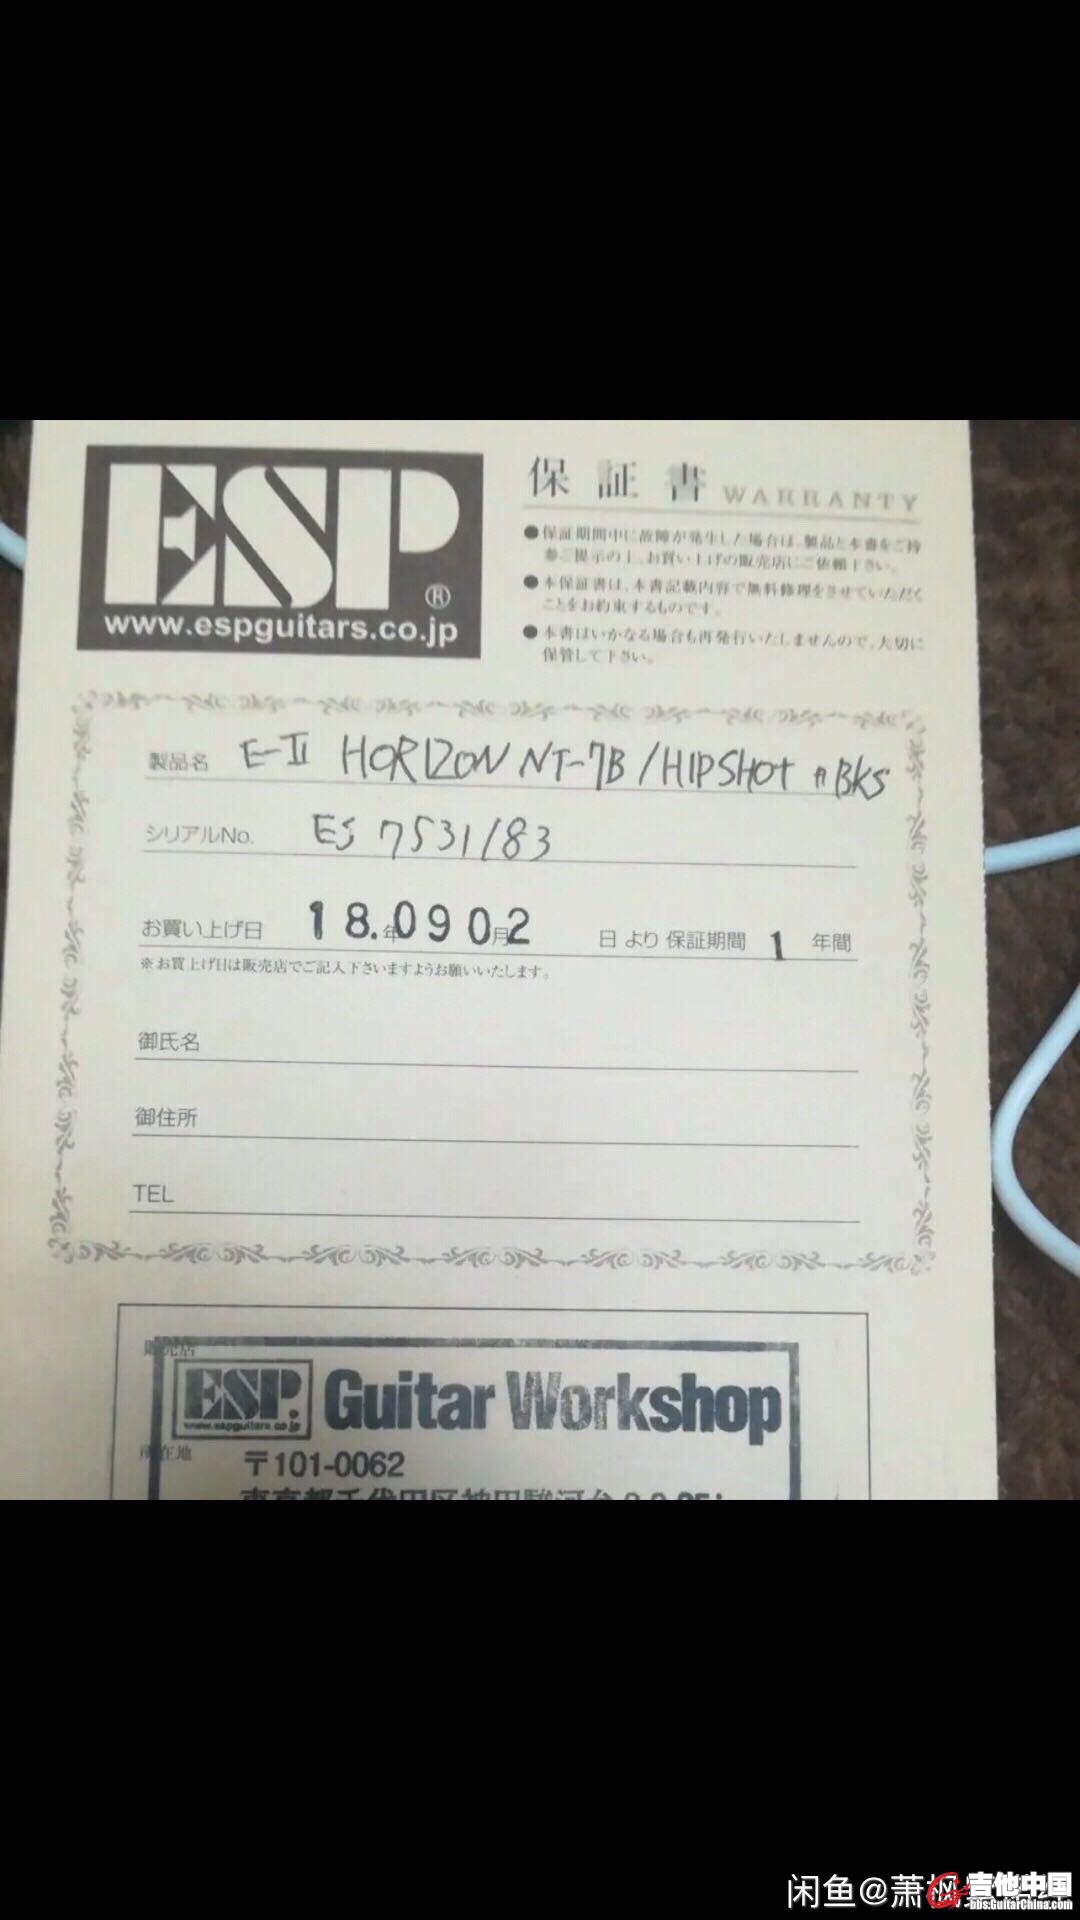 ESP®
www.espguitars.co.jp
保証書 WARRANTY
●保証期間中に故障が発生した場合は、製品と本書をご持
参ご提示の上、お買い上げの販売店にご依頼下さい。
●本保証書は、本書記載内容で無料修理をさせていただく
ことをお約束するものです。
●本書はいかなる場合も再発行いたしませんので、大切に
保管して下さい。
製品名 E-II HORIZON NT-7B/HIPSHOT BKS
シリアルNo. ES 7531183
お買い上げ日 18.年09 0月2 日より 保証期間 1 年間
※お買上げ日は販売店でご記入下さいますようお願いいたします。
御氏名
御住所
TEL
販売店
ESP. Guitar Workshop
www.espguitars.co.jp
所在地
〒101-0062
東京都千代田区神田駿河台
闲鱼@萧
吉他中国
bbs.GuitarChina.com